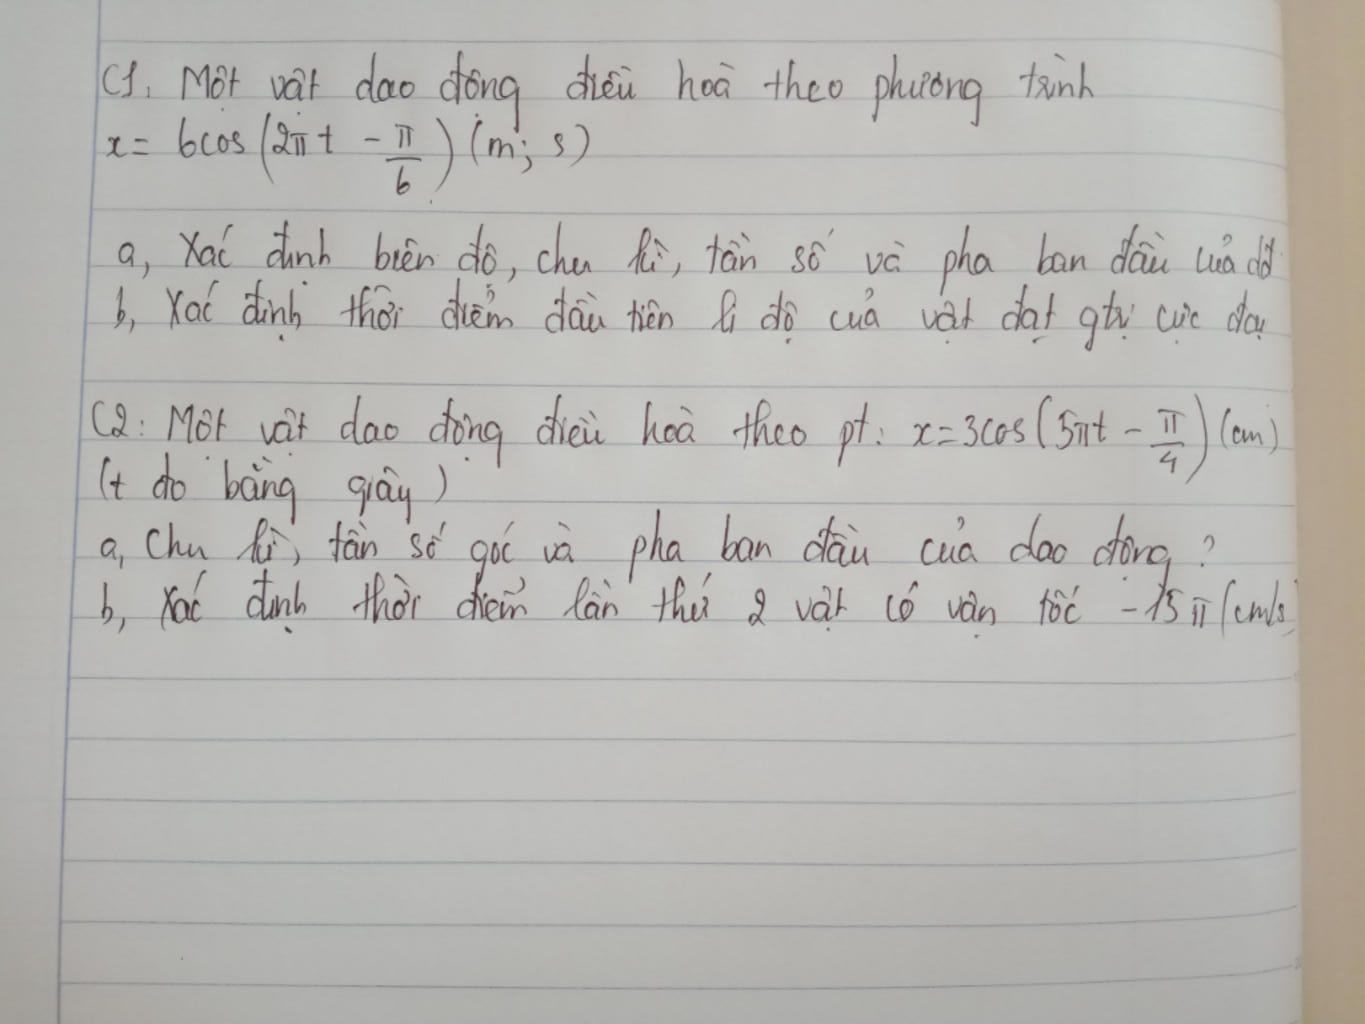 C1. Một vật dao động điều hoà theo phương trình
x = 6cos(2πt - π/6) (m; s)
a, Xác định biên độ, chu kì, tần số và pha ban đầu của dđ
b, Xác định thời điểm đầu tiên li độ của vật đạt gtrị cực đại
C2: Một vật dao động điều hoà theo pt: x = 3cos(5πt - π/4) (cm)
(t đo bằng giây)
a, Chu kì, tần số góc và pha ban đầu của dao động?
b, Xác định thời điểm lần thứ 2 vật có vận tốc -15π (cm/s)